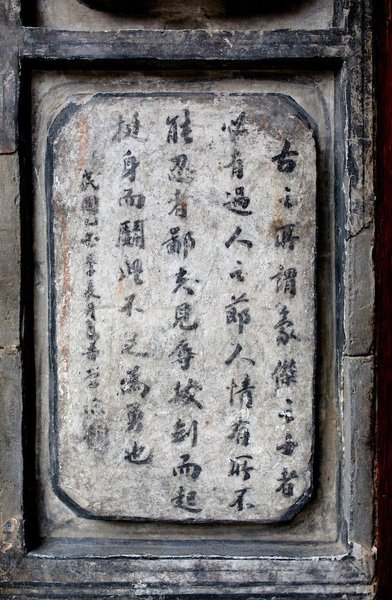 古之所謂豪傑之士者
必有過人之節人情有所不
能忍者鄙夫見辱拔劍而起
挺身而鬬此不足為勇也
民國